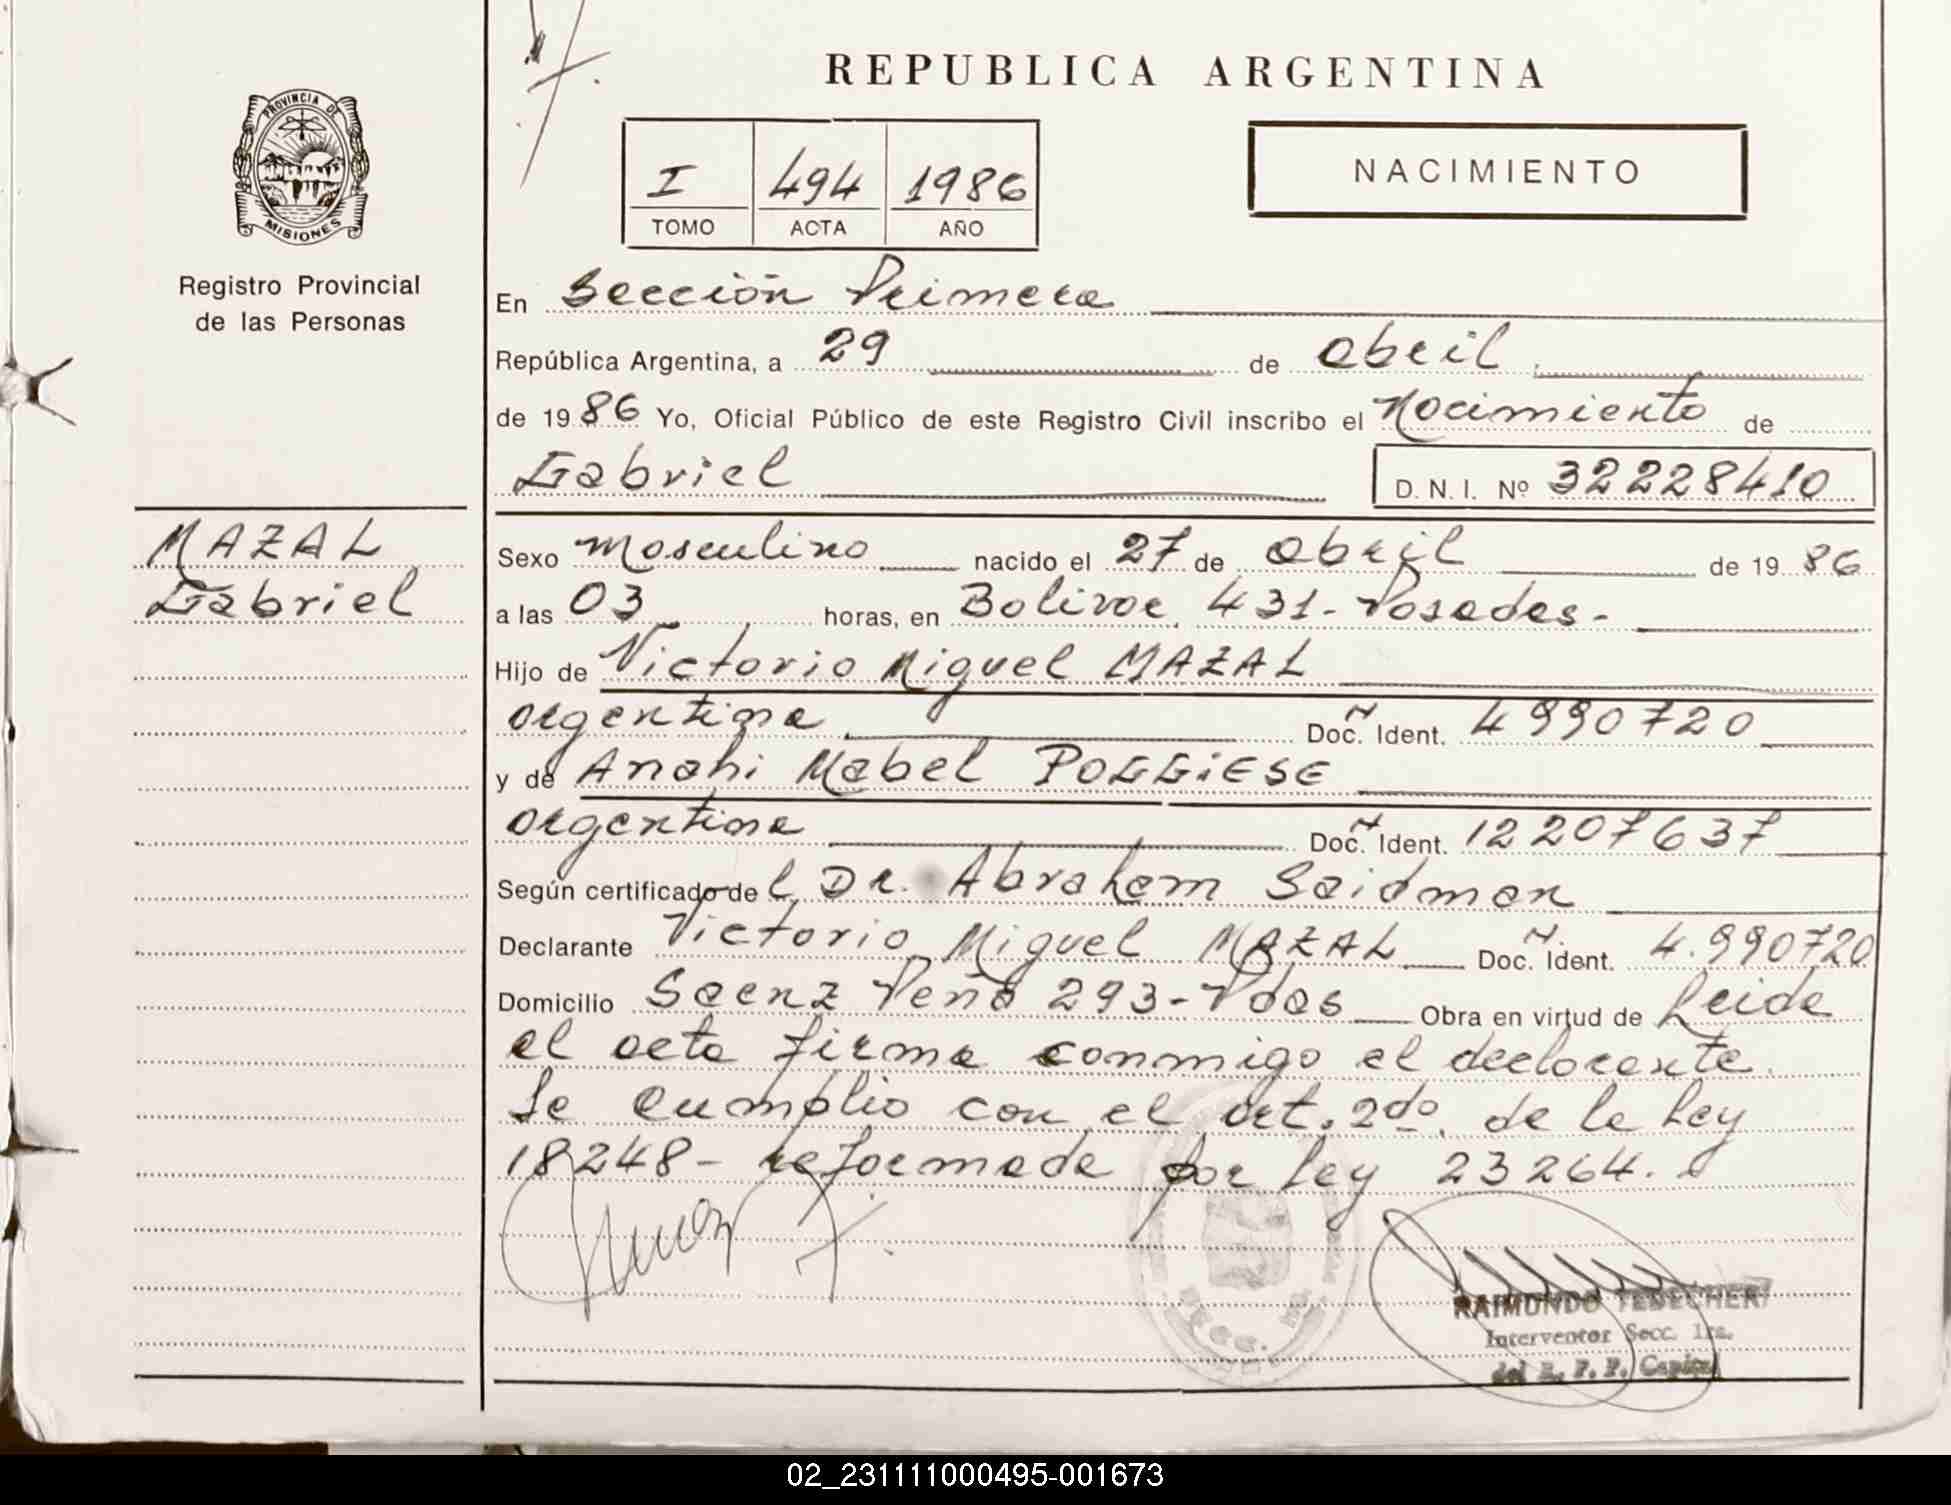 REPUBLICA ARGENTINA
PROVINCIA DE
MISIONES
Registro Provincial
de las Personas
I 494 1986
TOMO ACTA AÑO
NACIMIENTO
En Sección Primera
República Argentina, a 29 de abril
de 1986 Yo, Oficial Público de este Registro Civil inscribo el Nacimiento de
Gabriel
D. N. I. Nº 32228410
MAZAL
Gabriel
Sexo Masculino nacido el 27 de abril de 1986
a las 03 horas, en Bolivar 431- Posadas-
Hijo de Victorio Miguel MAZAL
argentina Doc. Ident. 4990720
y de Anahi Mabel POGGIESE
argentina Doc. Ident. 12207637
Según certificado del Dr. Abraham Saidman
Declarante Victorio Miguel MAZAL Doc. Ident. 4.990720
Domicilio Saenz Peña 293-Pdas Obra en virtud de Leida
el acta firma conmigo el declarante.
Se cumplio con el art. 2do. de la Ley
18248- reformada por Ley 23264.
RAIMUNDO
Interventor Secc. 1ra.
del R. P. P. Capital
02_231111000495-001673